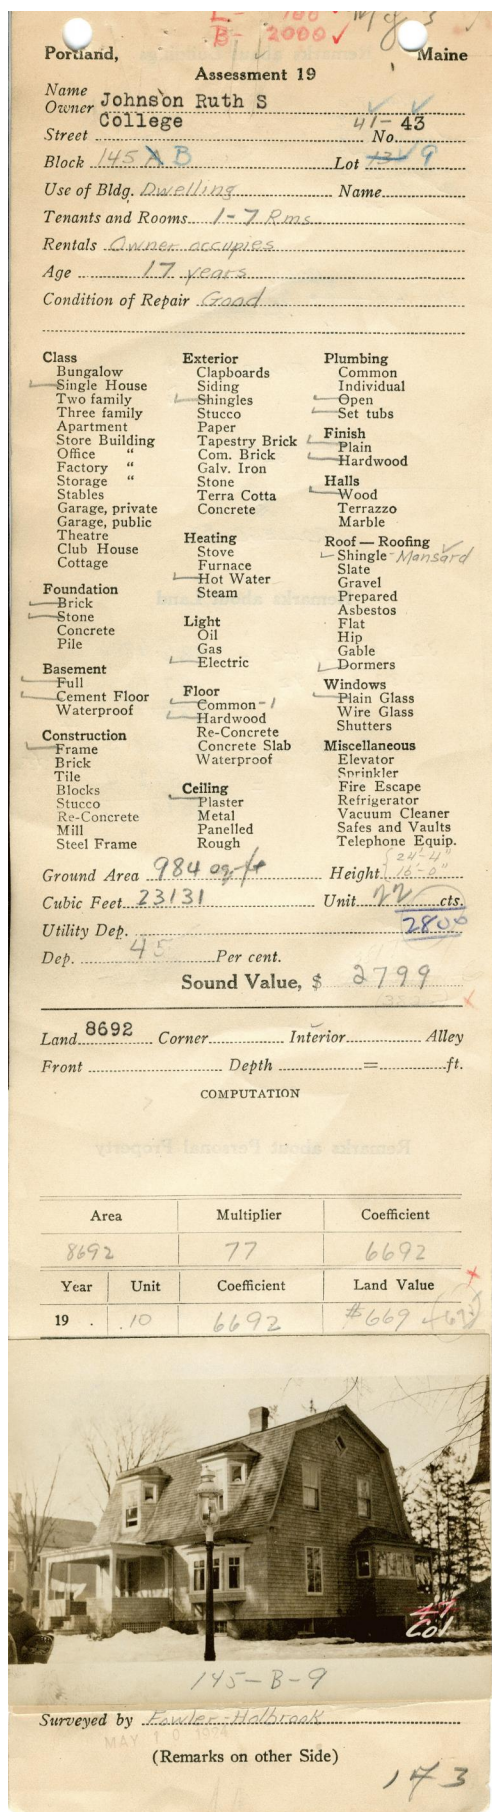 B- 2000 ✓
Portland, Maine
Assessment 19
Name
Owner Johnson Ruth S
Street College No. 41-43
Block 145 A B Lot 13 9
Use of Bldg. Dwelling Name
Tenants and Rooms 1-7 Rms
Rentals Owner occupies
Age 17 years
Condition of Repair Good
Class
Bungalow
Single House
Two family
Three family
Apartment
Store Building
Office "
Factory "
Storage "
Stables
Garage, private
Garage, public
Theatre
Club House
Cottage
Foundation
Brick
Stone
Concrete
Pile
Basement
Full
Cement Floor
Waterproof
Construction
Frame
Brick
Tile
Blocks
Stucco
Re-Concrete
Mill
Steel Frame
Exterior
Clapboards
Siding
Shingles
Stucco
Paper
Tapestry Brick
Com. Brick
Galv. Iron
Stone
Terra Cotta
Concrete
Heating
Stove
Furnace
Hot Water
Steam
Light
Oil
Gas
Electric
Floor
Common - 1
Hardwood
Re-Concrete
Concrete Slab
Waterproof
Ceiling
Plaster
Metal
Panelled
Rough
Plumbing
Common
Individual
Open
Set tubs
Finish
Plain
Hardwood
Halls
Wood
Terrazzo
Marble
Roof — Roofing
Shingle - Mansard
Slate
Gravel
Prepared
Asbestos
Flat
Hip
Gable
Dormers
Windows
Plain Glass
Wire Glass
Shutters
Miscellaneous
Elevator
Sprinkler
Fire Escape
Refrigerator
Vacuum Cleaner
Safes and Vaults
Telephone Equip.
Ground Area 984 sq ft Height 24'-4" 16'-0"
Cubic Feet 23131 Unit 22 cts.
Utility Dep. 2800
Dep. 45 Per cent.
Sound Value, $ 2799
Land 8692 Corner Interior Alley
Front Depth = ft.
COMPUTATION
Area Multiplier Coefficient
8692 77 6692
Year Unit Coefficient Land Value
19 . .10 6692 $669
47
Col
145-B-9
Surveyed by Fowler-Holbrook
(Remarks on other Side)
173